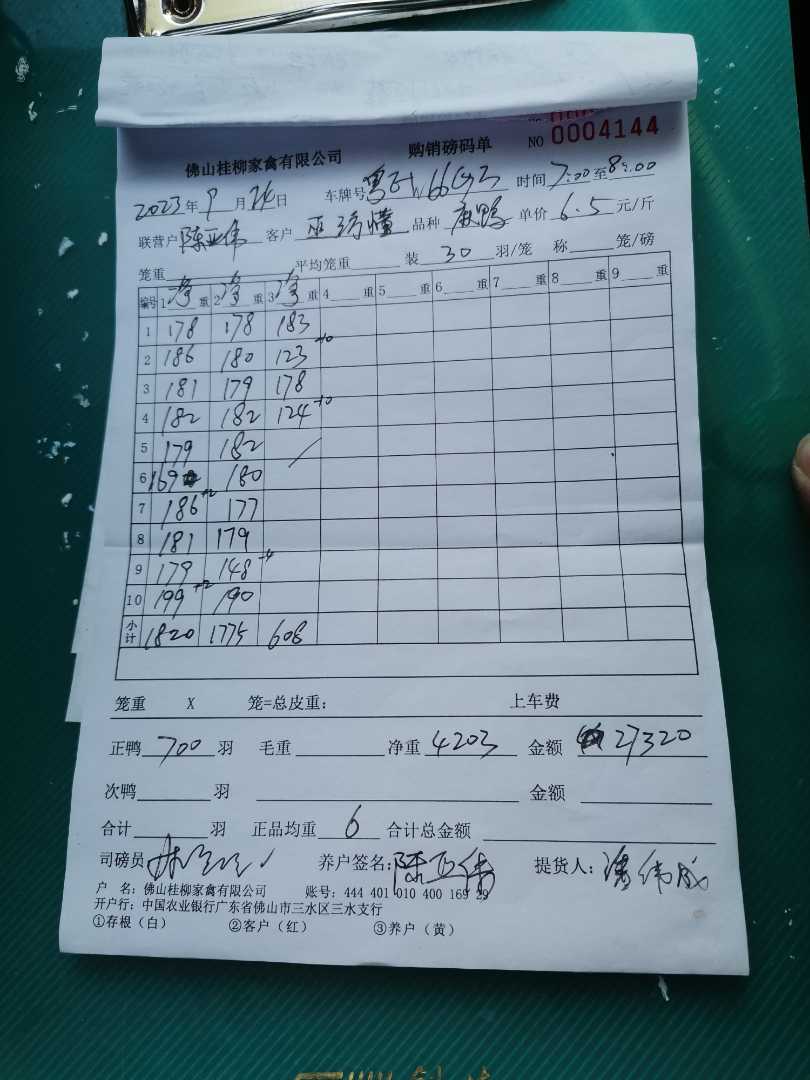 佛山桂柳家禽有限公司 购销磅码单 NO 0004144
2023年9月24日 车牌号 时间7:00至8:00
联营户陈亚伟 客户 品种麻鸭 单价6.5元/斤
笼重 平均笼重 装30羽/笼 称 笼/磅
编号 1净重 2净重 3净重 4 重 5 重 6 重 7 重 8 重 9 重
1 178 178 183
2 186 180 123 -10
3 181 179 178
4 182 182 124 -10
5 179 182
6 169 180
7 186 +2 177
8 181 179
9 179 148 -4
10 199 +2 190
小计 1820 1775 608
笼重 X 笼=总皮重: 上车费
正鸭700羽 毛重 净重4203 金额27320
次鸭 羽 金额
合计 羽 正品均重6 合计总金额
司磅员 养户签名:陈亚伟 提货人:潘伟成
户 名:佛山桂柳家禽有限公司 账号:444 401 010 400 169 29
开户行:中国农业银行广东省佛山市三水区三水支行
①存根(白) ②客户(红) ③养户(黄)